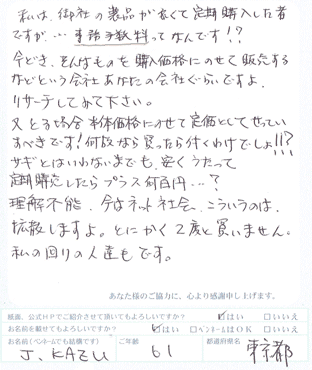 私は、御社の製品が良くて定期購入した者
ですが… 事務手数料ってなんです!?
今どき、そんなものを購入価格にのせて販売する
などという会社あなたの会社ぐらいですよ。
リサーチしてみて下さい。
又とる場合本体価格にのせて定価としてせってい
すべきです!何故なら買ったら付くわけでしょ!!?
サギとはいわないまでも、安くうたって
定期購売したらプラス何百円…?
理解不能、今はネット社会、こういうのは、
拡散しますよ。とにかく2度と買いません。
私の回りの人達もです。
あなた様のご協力に、心より感謝申し上げます。
紙面、公式HPでご紹介させて頂いてもよろしいですか? はい いいえ
お名前を載せてもよろしいですか? はい ペンネームはOK いいえ
お名前(ペンネームでも結構です) ご年齢 都道府県名
J. KAZU 61 東京都